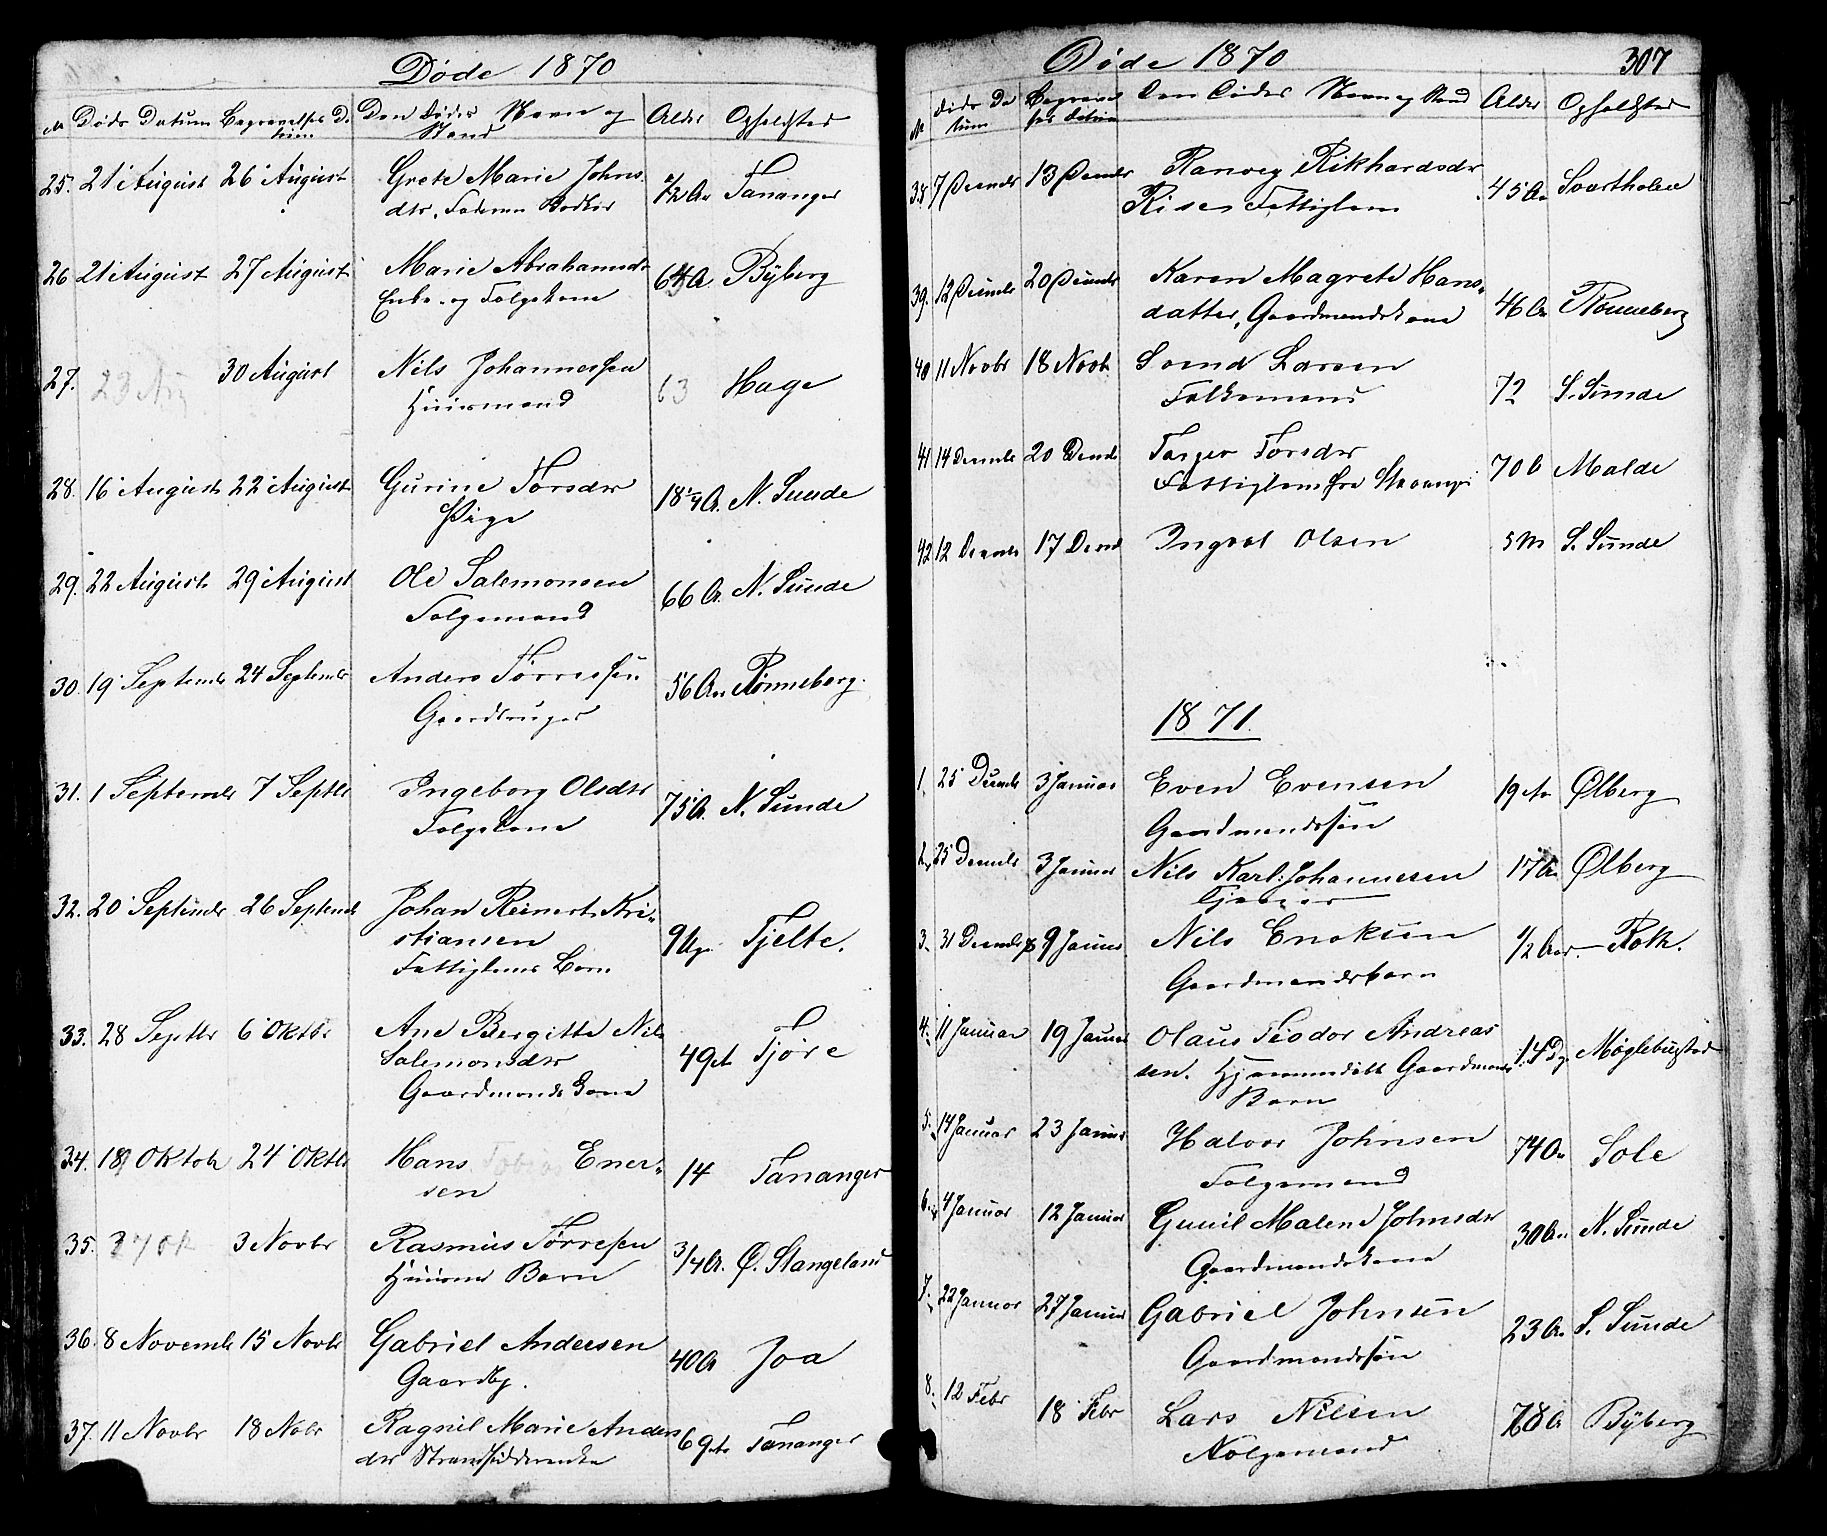 Døde 1870
№ Døds Datum Begravelses Datum Den Dødes Navn og Stand Alder Opholdsted
25. 21 August 26 August Grete Marie Johns
dtr, Faderen Bødker 1/2 Aar Tananger
26 21 August 27 August Marie Abrahamsdr
Enke og Folgekone 64 A Byberg
27. 23 Aug 30 August Nils Johannessen
Huusmand 63 Hage
28. 16 August 22 August Gurine Torsdr
Pige 18 1/4 A. N. Sunde
29. 22 August 29 August Ole Salemonsen
Folgemand 66 A. N. Sunde
30. 19 Septembr 24 Septembr Anders Tørresen
Gaardbruger 56 Aar Rønneberg.
31. 1 Septembr 7 Septbr Ingeborg Olsdtr
Folgekone 75 A. N. Sunde
32. 20 Septembr 26 Septembr Johan Reinert Kri-
stiansen
Fattiglems Barn 9 Tjelte.
33. 28 Septbr 6 Oktbr Ane Bergitte Nils
Salemonsdtr
Gaardmands Kone 49 Tjøre
34. 18 Oktobr 24 Oktbr Hans Tobias Ener-
sen 14 Tananger
35. 3 Novbr Rasmus Tørresen
Huusm Barn 3/4 A. Ø. Stangeland
36. 8 Novembr 15 Novbr Gabriel Andersen
Gaardbg. 40 A Joa
37. 11 Novbr 18 Nobr Ragnil Marie Anders
dtr Strandsidderenke 69 Tananger
Døde 1870 307
№ Døds Datum Begravelses Datum Den Dødes Navn og Stand Alder Opholdsted
38 7 Decembr 13 Decembr Ranveg Rikhardsdr
Riser Fattiglem 45 A. Svartholen
39. 12 Decembr 20 Decembr Karen Magrete Hans-
datter, Gaardmandskone 46 Aar Rønneberg
40 11 Novbr 18 Novb Svend Larsen
Folkemand 72 S. Sunde
41 14 Decembr 20 Decmb Torsdr
Fattiglem fra Stavanger 70 Malde
42 12 Decembr 17 Decmb Ingval Olsen 5 M S. Sunde
1871.
1. 25 Decmbr 3 Januar Even Evensen
Gaardmandssøn 19 Ar Ølberg
2. 25 Decmbr 3 Januar Nils Karl Johannesen
Tjener 17 A. Ølberg
3. 31 Decmbr 9 Januar Nils Enoksen
Gaardmandsbarn 1/2 Aar Roth.
4. 11 Januar 19 Januar Olaus Teodor Andreas
sen. Gaardmands
Barn 14 Dg Møglebustad
5. 14 Januar 23 Januar Halvor Johnsen
Folgemand 74 A. Sole
6. 4 Januar 12 Januar Gunil Malene Johnsdr
Gaardmandskone 30 A. N. Sunde
7. 22 Januar 27 Januar Gabriel Johnsen
Gaardmandssøn 23 A. S. Sunde
8. 12 Febr 18 Febr Lars Nilsen
Folgemand 78 A Byberg